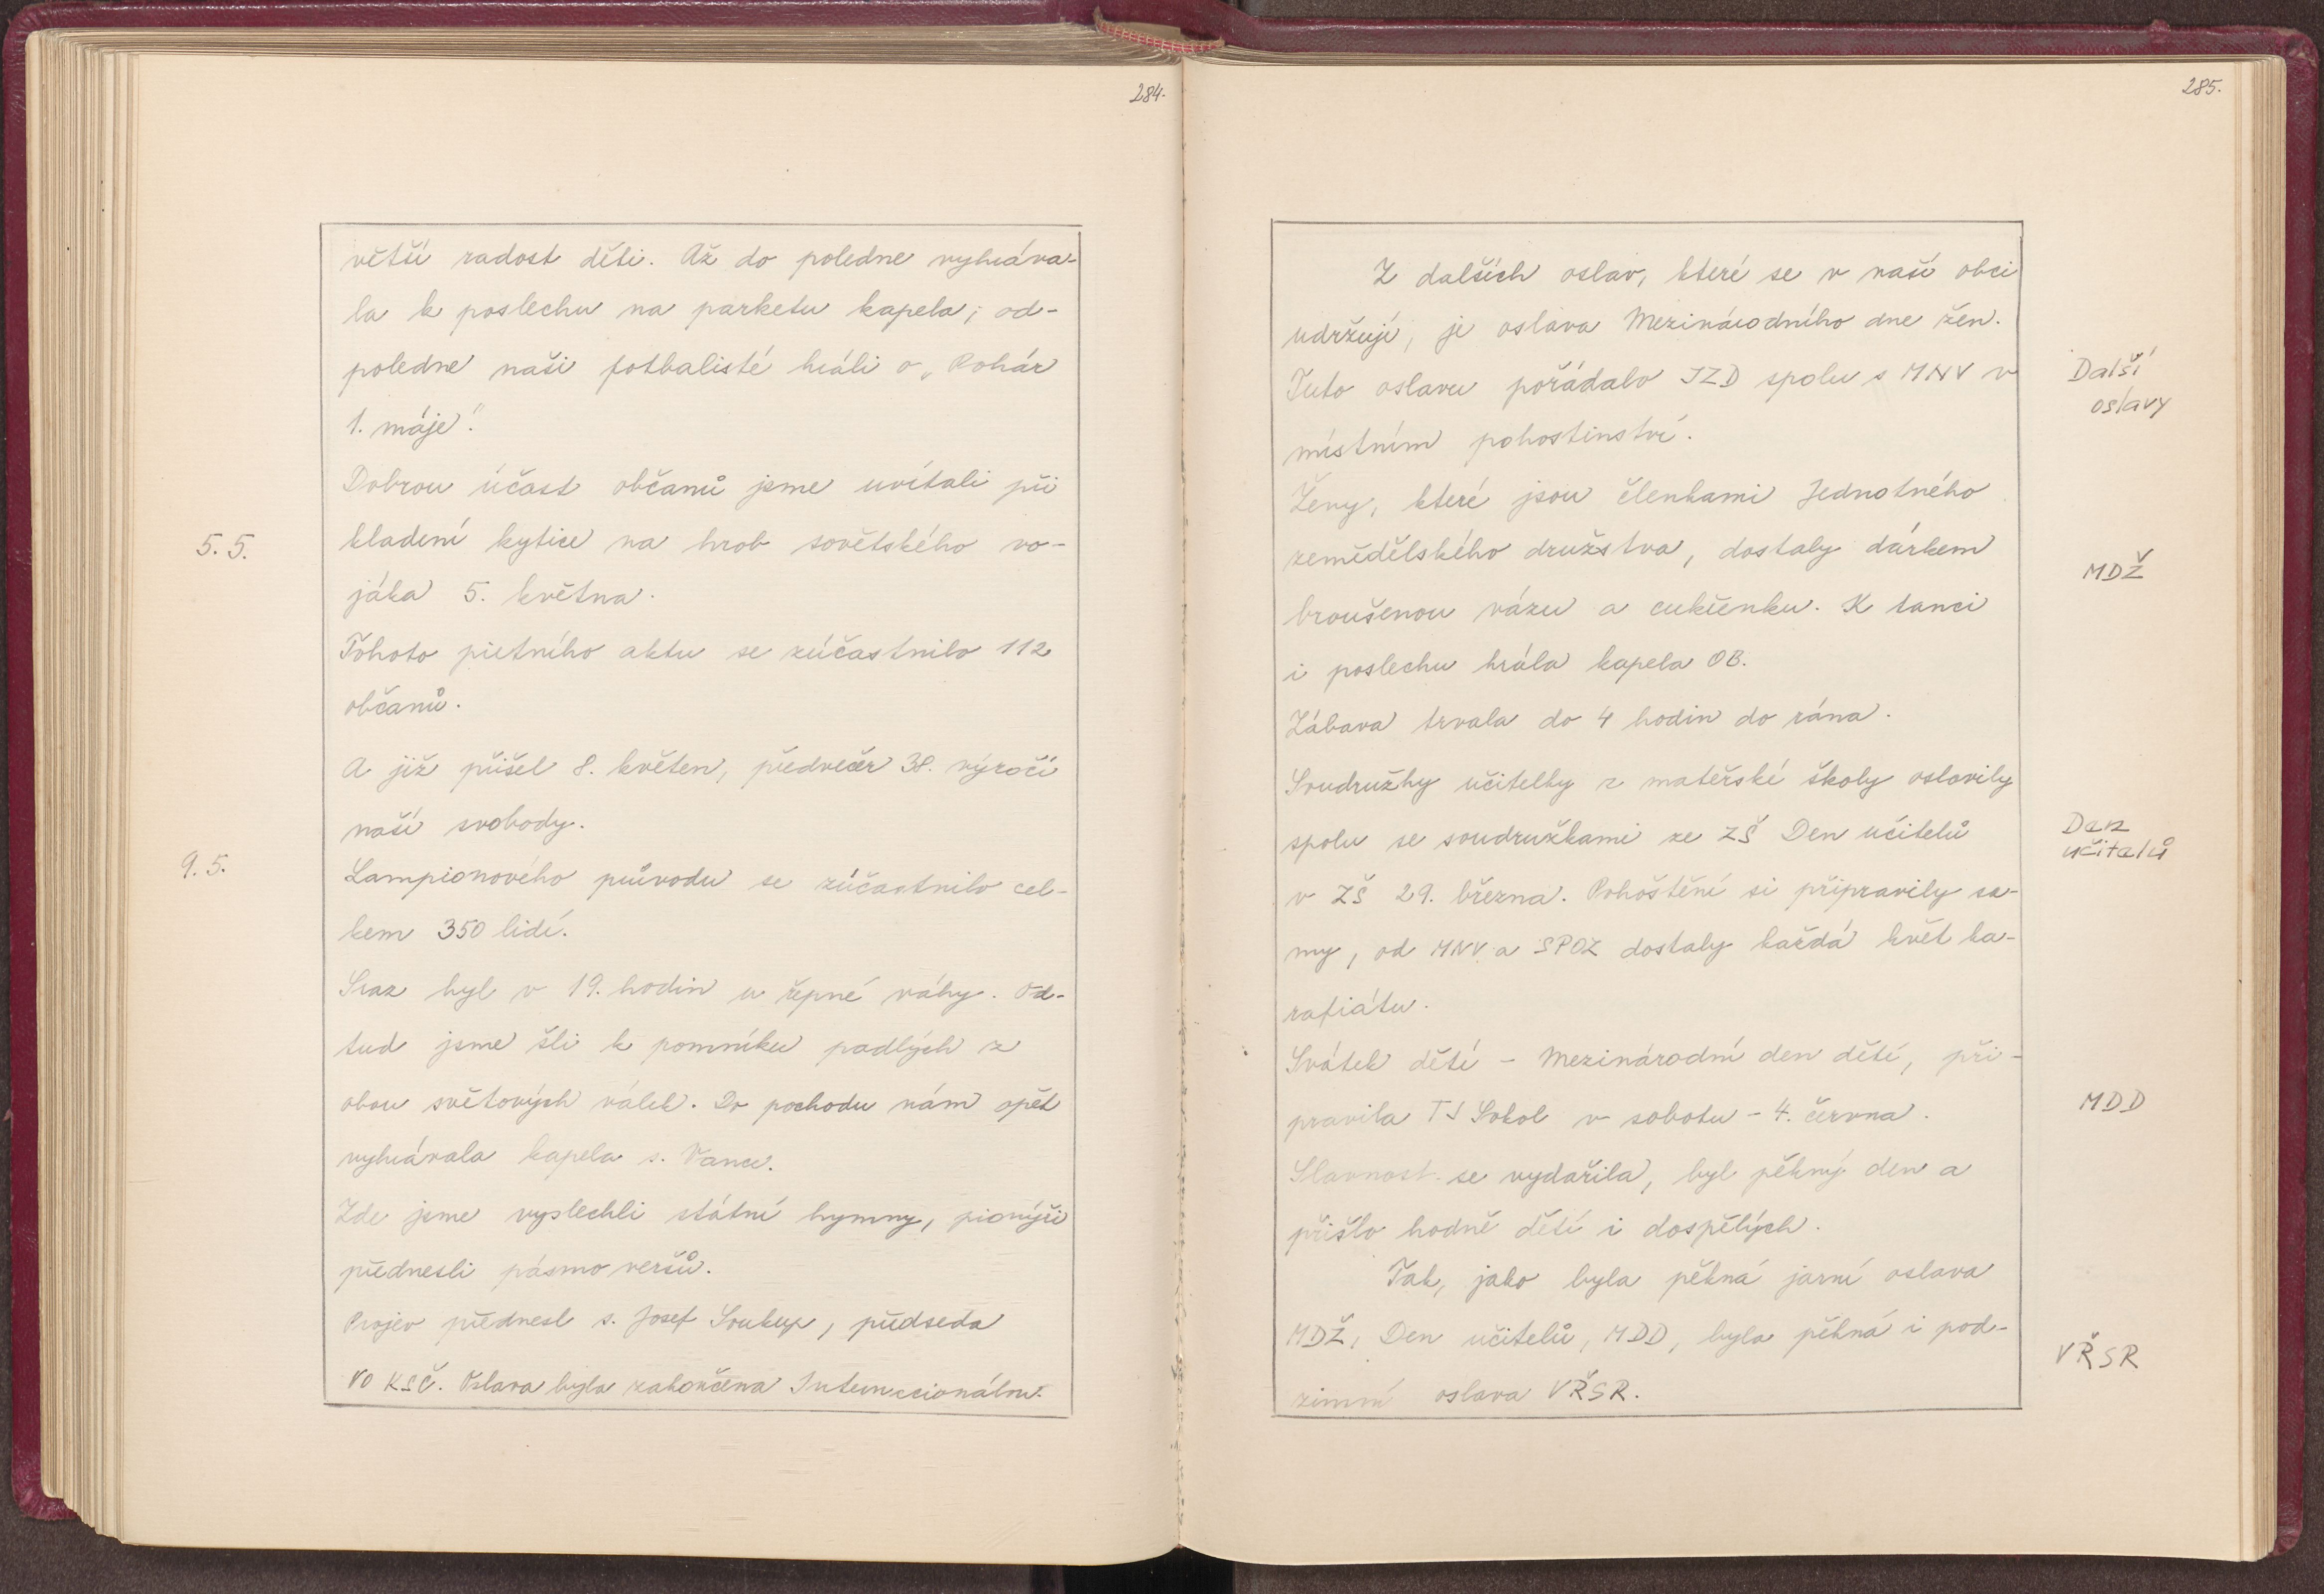 284.
větší radost děti. Až do poledne vyhráva-
la k poslechu na parketu kapela; od-
poledne naši fotbalisté hráli o „Pohár
1. máje".
Dobrou účast občanů jsme uvítali při
5. 5.
kladení kytice na hrob sovětského vo-
jáka 5. května.
Tohoto pietního aktu se zúčastnilo 112
občanů.
A již přišel 8. květen, předvečer 38. výročí
naší svobody.
9. 5.
Lampionového průvodu se zúčastnilo cel-
kem 350 lidí.
Sraz byl v 19. hodin u řepné váhy. Od-
tud jsme šli k pomníku padlých z
obou světových válek. Do pochodu nám opět
vyhrávala kapela s. Vance.
Zde jsme vyslechli státní hymny, pionýři
přednesli pásmo veršů.
Projev přednesl s. Josef Soukup, předseda
VO KSČ. Oslava byla zakončena Internacionálou.
285.
Z dalších oslav, které se v naší obci
udržují, je oslava Mezinárodního dne žen.
Tuto oslavu pořádalo JZD spolu s MNV v
Další
oslavy
místním pohostinství.
Ženy, které jsou členkami Jednotného
zemědělského družstva, dostaly dárkem
MDŽ
broušenou vázu a cukřenku. K tanci
i poslechu hrála kapela OB.
Zábava trvala do 4 hodin do rána.
Soudružky učitelky z mateřské školy oslavily
spolu se soudružkami ze ZŠ Den učitelů
Den
učitelů
v ZŠ 29. března. Pohoštění si připravily sa-
my, od MNV a SPOZ dostaly každá květ ka-
rafiátu.
Svátek dětí - Mezinárodní den dětí, při-
pravila TJ Sokol v sobotu - 4. června.
MDD
Slavnost se vydařila, byl pěkný den a
přišlo hodně dětí i dospělých.
Tak, jako byla pěkná jarní oslava
MDŽ, Den učitelů, MDD, byla pěkná i pod-
VŘSR
zimní oslava VŘSR.